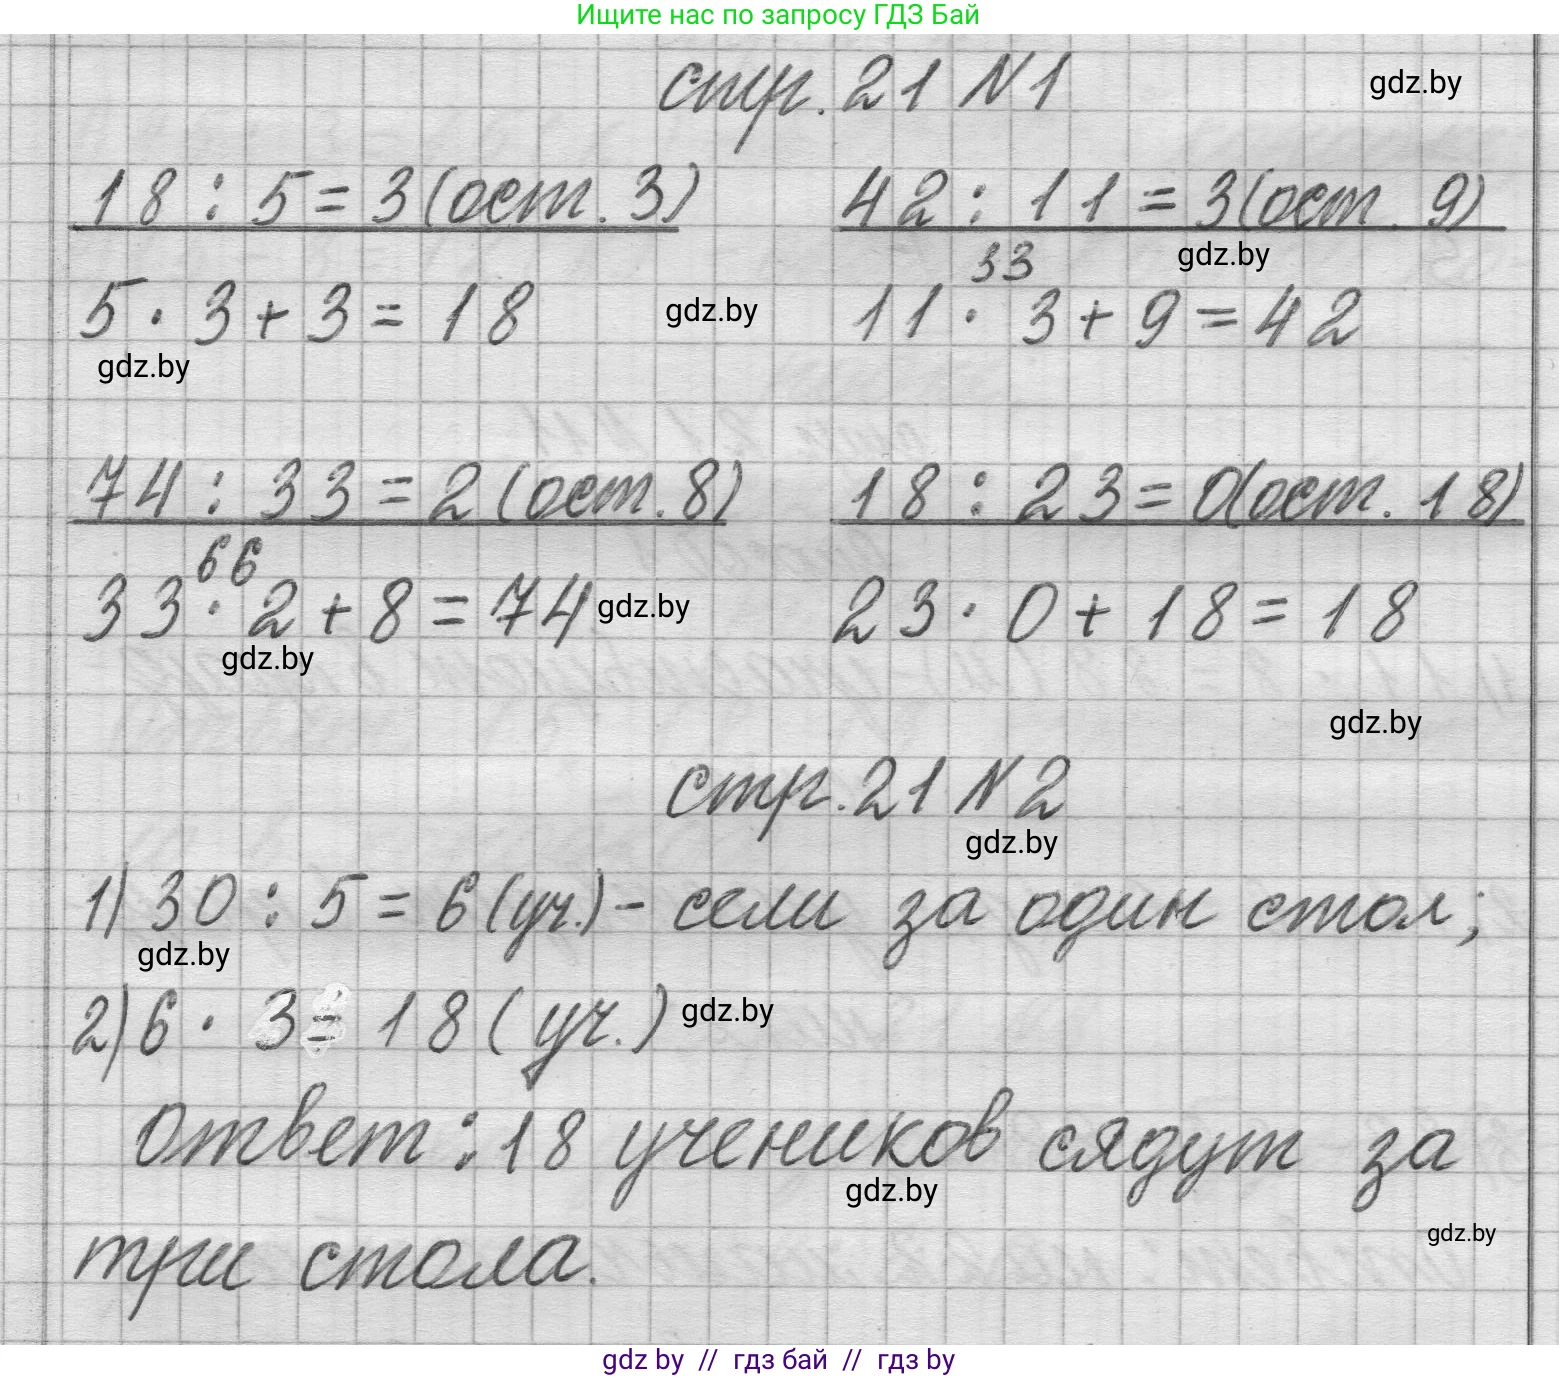 Ищите нас по запросу ГДЗ Бай
стр. 21 №1
gdz.by
18 : 5 = 3 (ост. 3) 42 : 11 = 3 (ост. 9)
gdz.by
33
5 · 3 + 3 = 18 gdz.by 11 · 3 + 9 = 42
gdz.by
74 : 33 = 2 (ост. 8) 18 : 23 = 0 (ост. 18)
66
33 · 2 + 8 = 74 gdz.by 23 · 0 + 18 = 18
gdz.by
gdz.by
стр. 21 №2
gdz.by
1) 30 : 5 = 6 (уч.) - сели за один стол;
gdz.by
2) 6 · 3 = 18 (уч.) gdz.by
Ответ: 18 учеников сядут за
gdz.by
gdz.by
три стола.
gdz by // гдз бай // гдз by